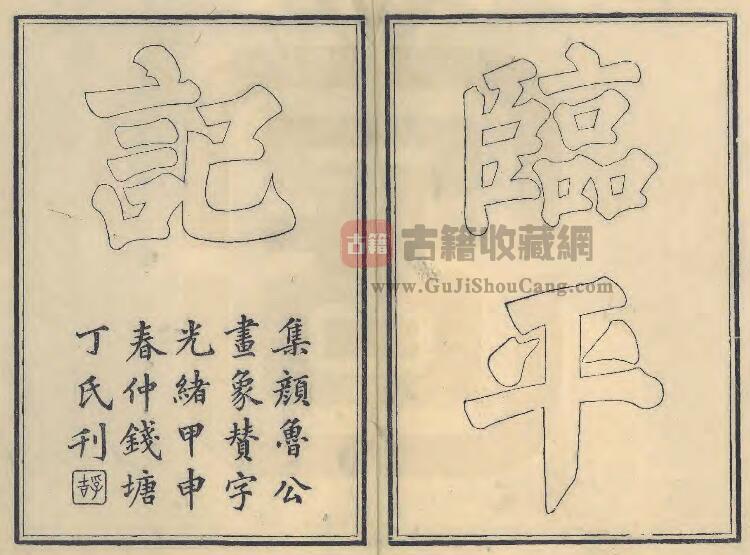 臨平
記
集顏魯公
畫象賛字
光緒甲申
春仲錢塘
丁氏刊
古籍
古籍收藏網
www.GuJiShouCang.com